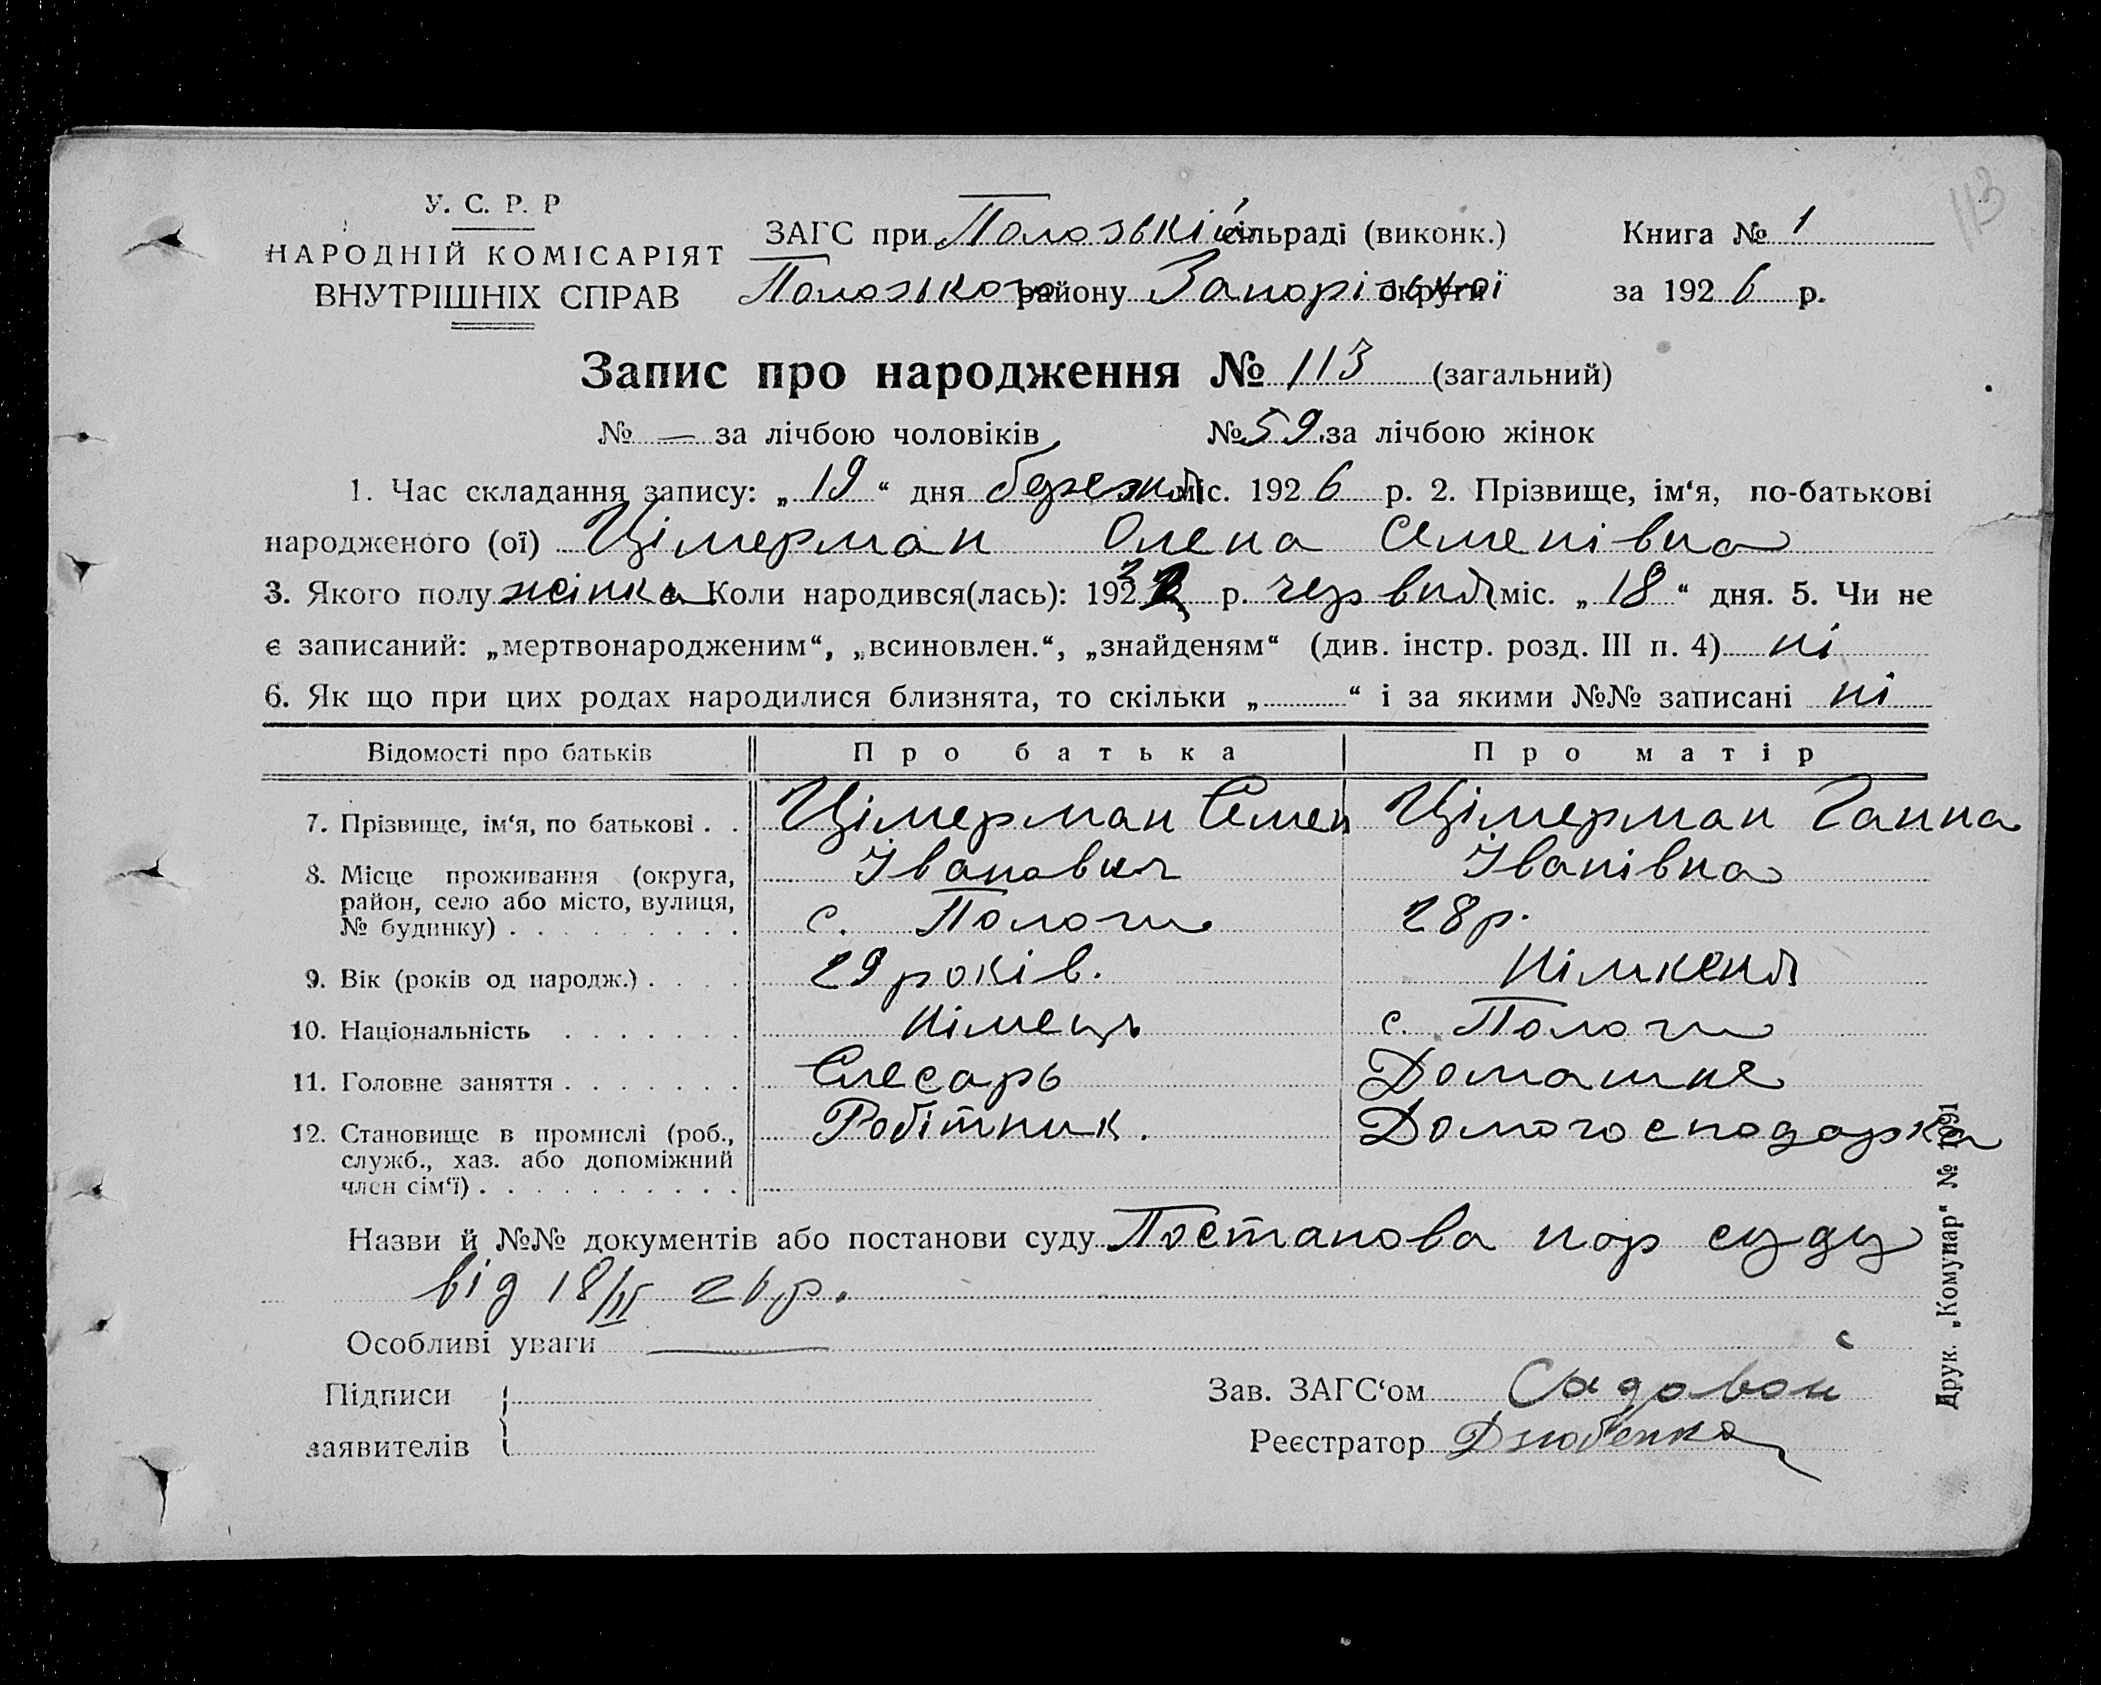 113
У. С. Р. Р
НАРОДНІЙ КОМІСАРІЯТ
ВНУТРІШНІХ СПРАВ
ЗАГС при Положській сільраді (виконк.)
Положського району Запорізької округи
Книга № 1
за 1926 р.
Запис про народження № 113 (загальний)
№ — за лічбою чоловіків № 59 за лічбою жінок
1. Час складання запису: „19“ дня березня міс. 1926 р. 2. Прізвище, ім‘я, по-батькові
народженого (ої) Цімерман Олена Семенівна
3. Якого полу жінка Коли народився(лась): 192 р. червня міс. „18“ дня. 5. Чи не
є записаний: „мертвонародженим“, „всиновлен.“, „знайденям“ (див. інстр. розд. III п. 4) ні
6. Як що при цих родах народилися близнята, то скільки „ “ і за якими №№ записані ні
Відомості про батьків Про батька Про матір
7. Прізвище, ім‘я, по батькові . . Цімерман Семен Цімерман Ганна
8. Місце проживання (округа, Іванович Іванівна
район, село або місто, вулиця,
№ будинку) . . . . . . . . . с. Пологи 28 р.
9. Вік (років од народж.) . . . . 29 років. Німкеня
10. Національність . . . . . . . Німець с. Пологи
11. Головне заняття . . . . . . . Слесарь Домашнє
12. Становище в промислі (роб., Робітник. Домогосподарка
служб., хаз. або допоміжний
член сім‘ї) . . . . . . . . . .
Назви й №№ документів або постанови суду Постанова нар суду
від 18/II 26 р.
Особливі уваги —
Підписи
заявителів
Зав. ЗАГС‘ом Садовой
Реєстратор Дзюбенко
Друк. „Комунар“ № 1091